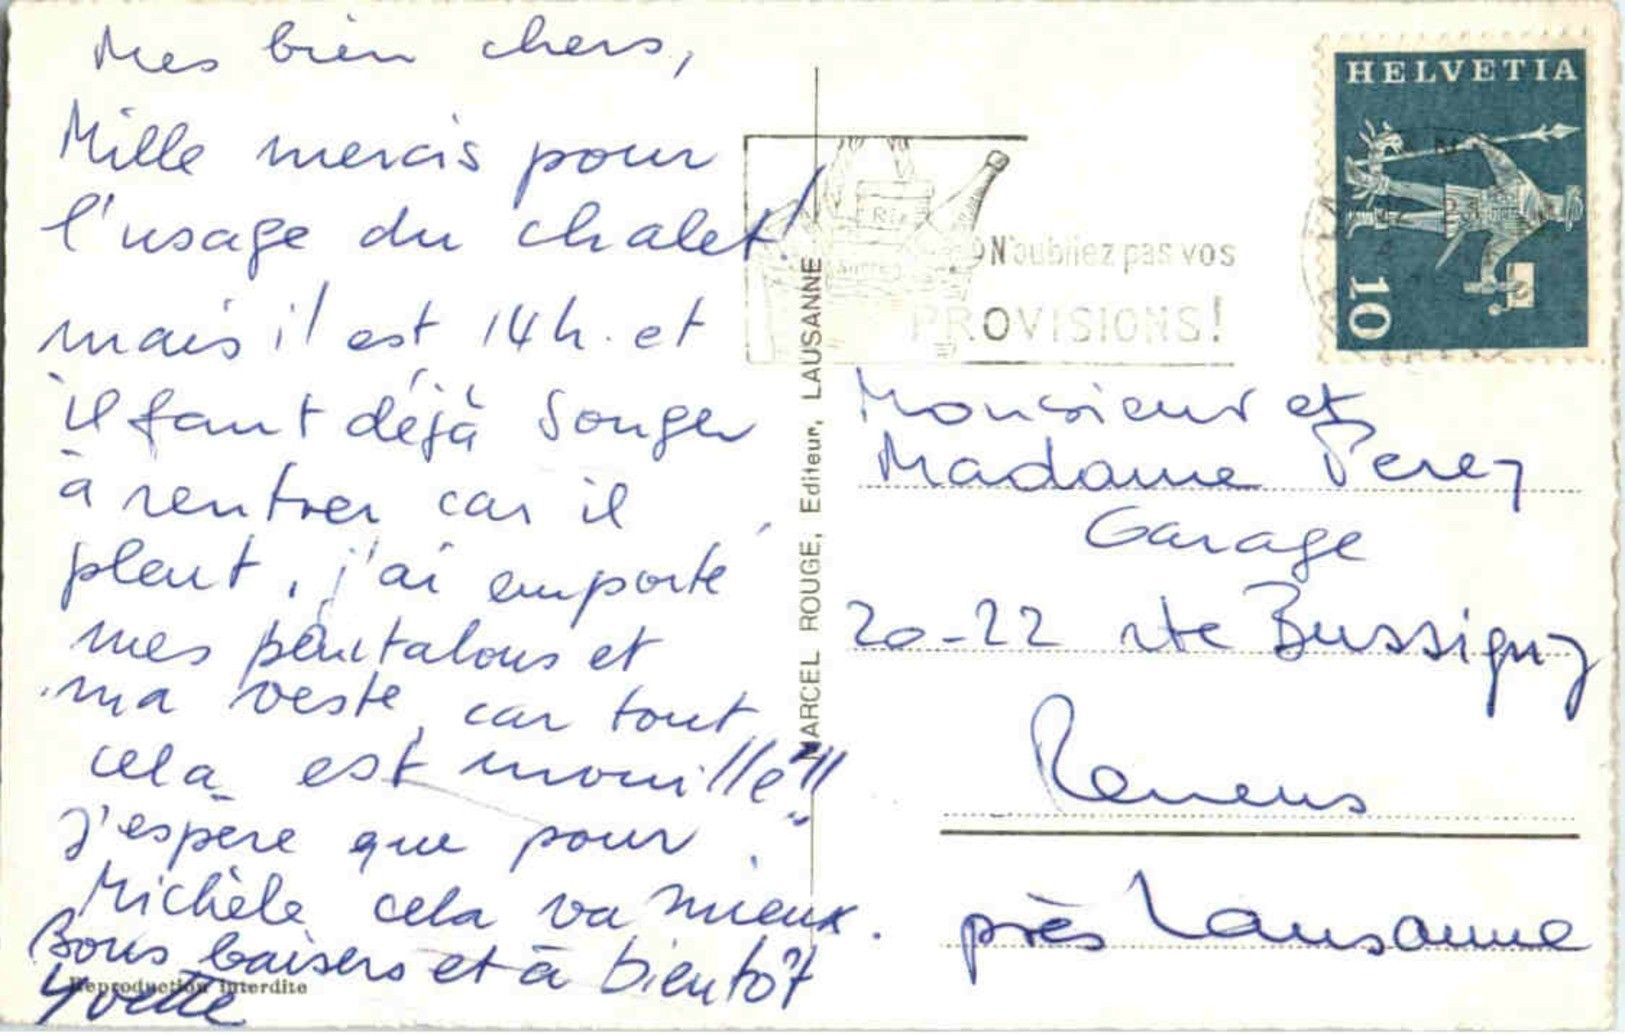 Mes bien chers,
Mille mercis pour
l'usage du chalet!
mais il est 14h. et
il faut déjà songer
à rentrer car il
pleut, j'ai emporté
mes pantalons et
ma veste, car tout
cela est mouillé!!!
J'espère que pour
Michèle cela va mieux.
Bons baisers et à bientôt
Yvette
Reproduction interdite
MARCEL ROUGE, Editeur, LAUSANNE
Riz
Sucre
N'oubliez pas vos
PROVISIONS!
HELVETIA
10
Monsieur et
Madame Perez
Garage
20-22 rte Bussigny
Renens
près Lausanne